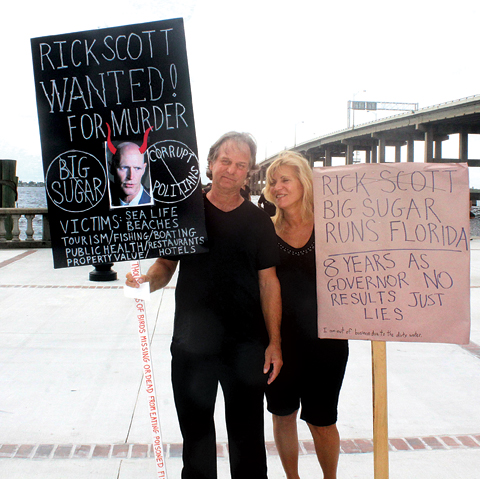 RICK SCOTT
WANTED!
FOR MURDER
BIG
SUGAR
CORRUPT
POLITIANS
VICTIMS: SEA LIFE
BEACHES
TOURISM/FISHING/BOATING
PUBLIC HEALTH/RESTAURANTS
PROPERTY VALUE/HOTELS
OF BIRDS MISSING OR DEAD FROM EATING POISONED
RICK SCOTT
BIG SUGAR
RUNS FLORIDA
8 YEARS AS
GOVERNOR NO
RESULTS JUST
LIES
I am out of business due to the dirty water.